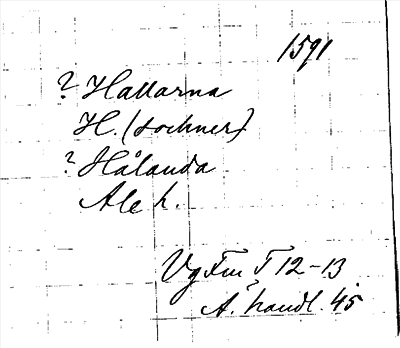 1591
? Hallarna
H. (sochnen)
? Hålanda
Ale h.
Vg Fm T 12-13
Ä. handl. 45